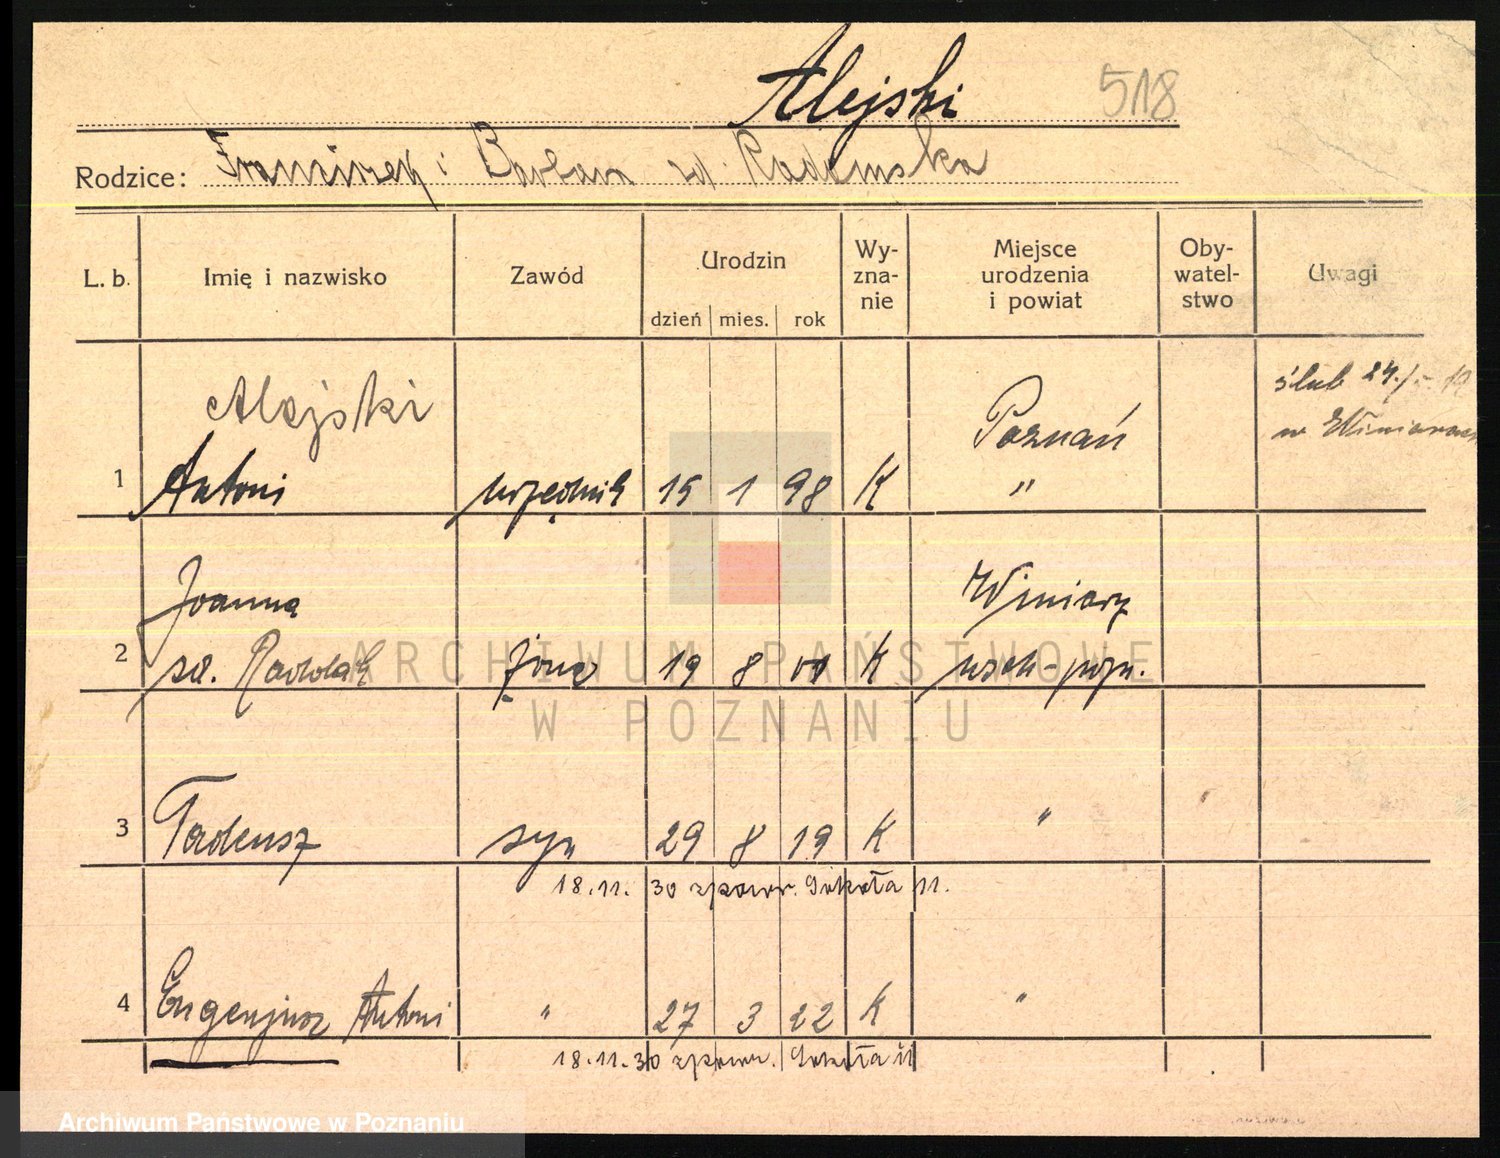 Alejski 518
Rodzice: Franciszek i Barbara zd. Radomska
L. b. Imię i nazwisko Zawód Urodzin Wy- zna- nie Miejsce urodzenia i powiat Oby- watel- stwo Uwagi
dzień mies. rok
Alejski Poznań ślub 24./
1 Antoni urzędnik 15 1 98 K " w Winiarach
Joanna Winiary
2 zd. żona 19 8 01 K pozn.
3 Tadeusz syn 29 8 19 K "
18.11. 30 Sokoła 11.
4 Eugenjusz Antoni " 27 3 22 K "
18.11.30 Sokoła 11
ARCHIWUM PAŃSTWOWE
W POZNANIU
Archiwum Państwowe w Poznaniu